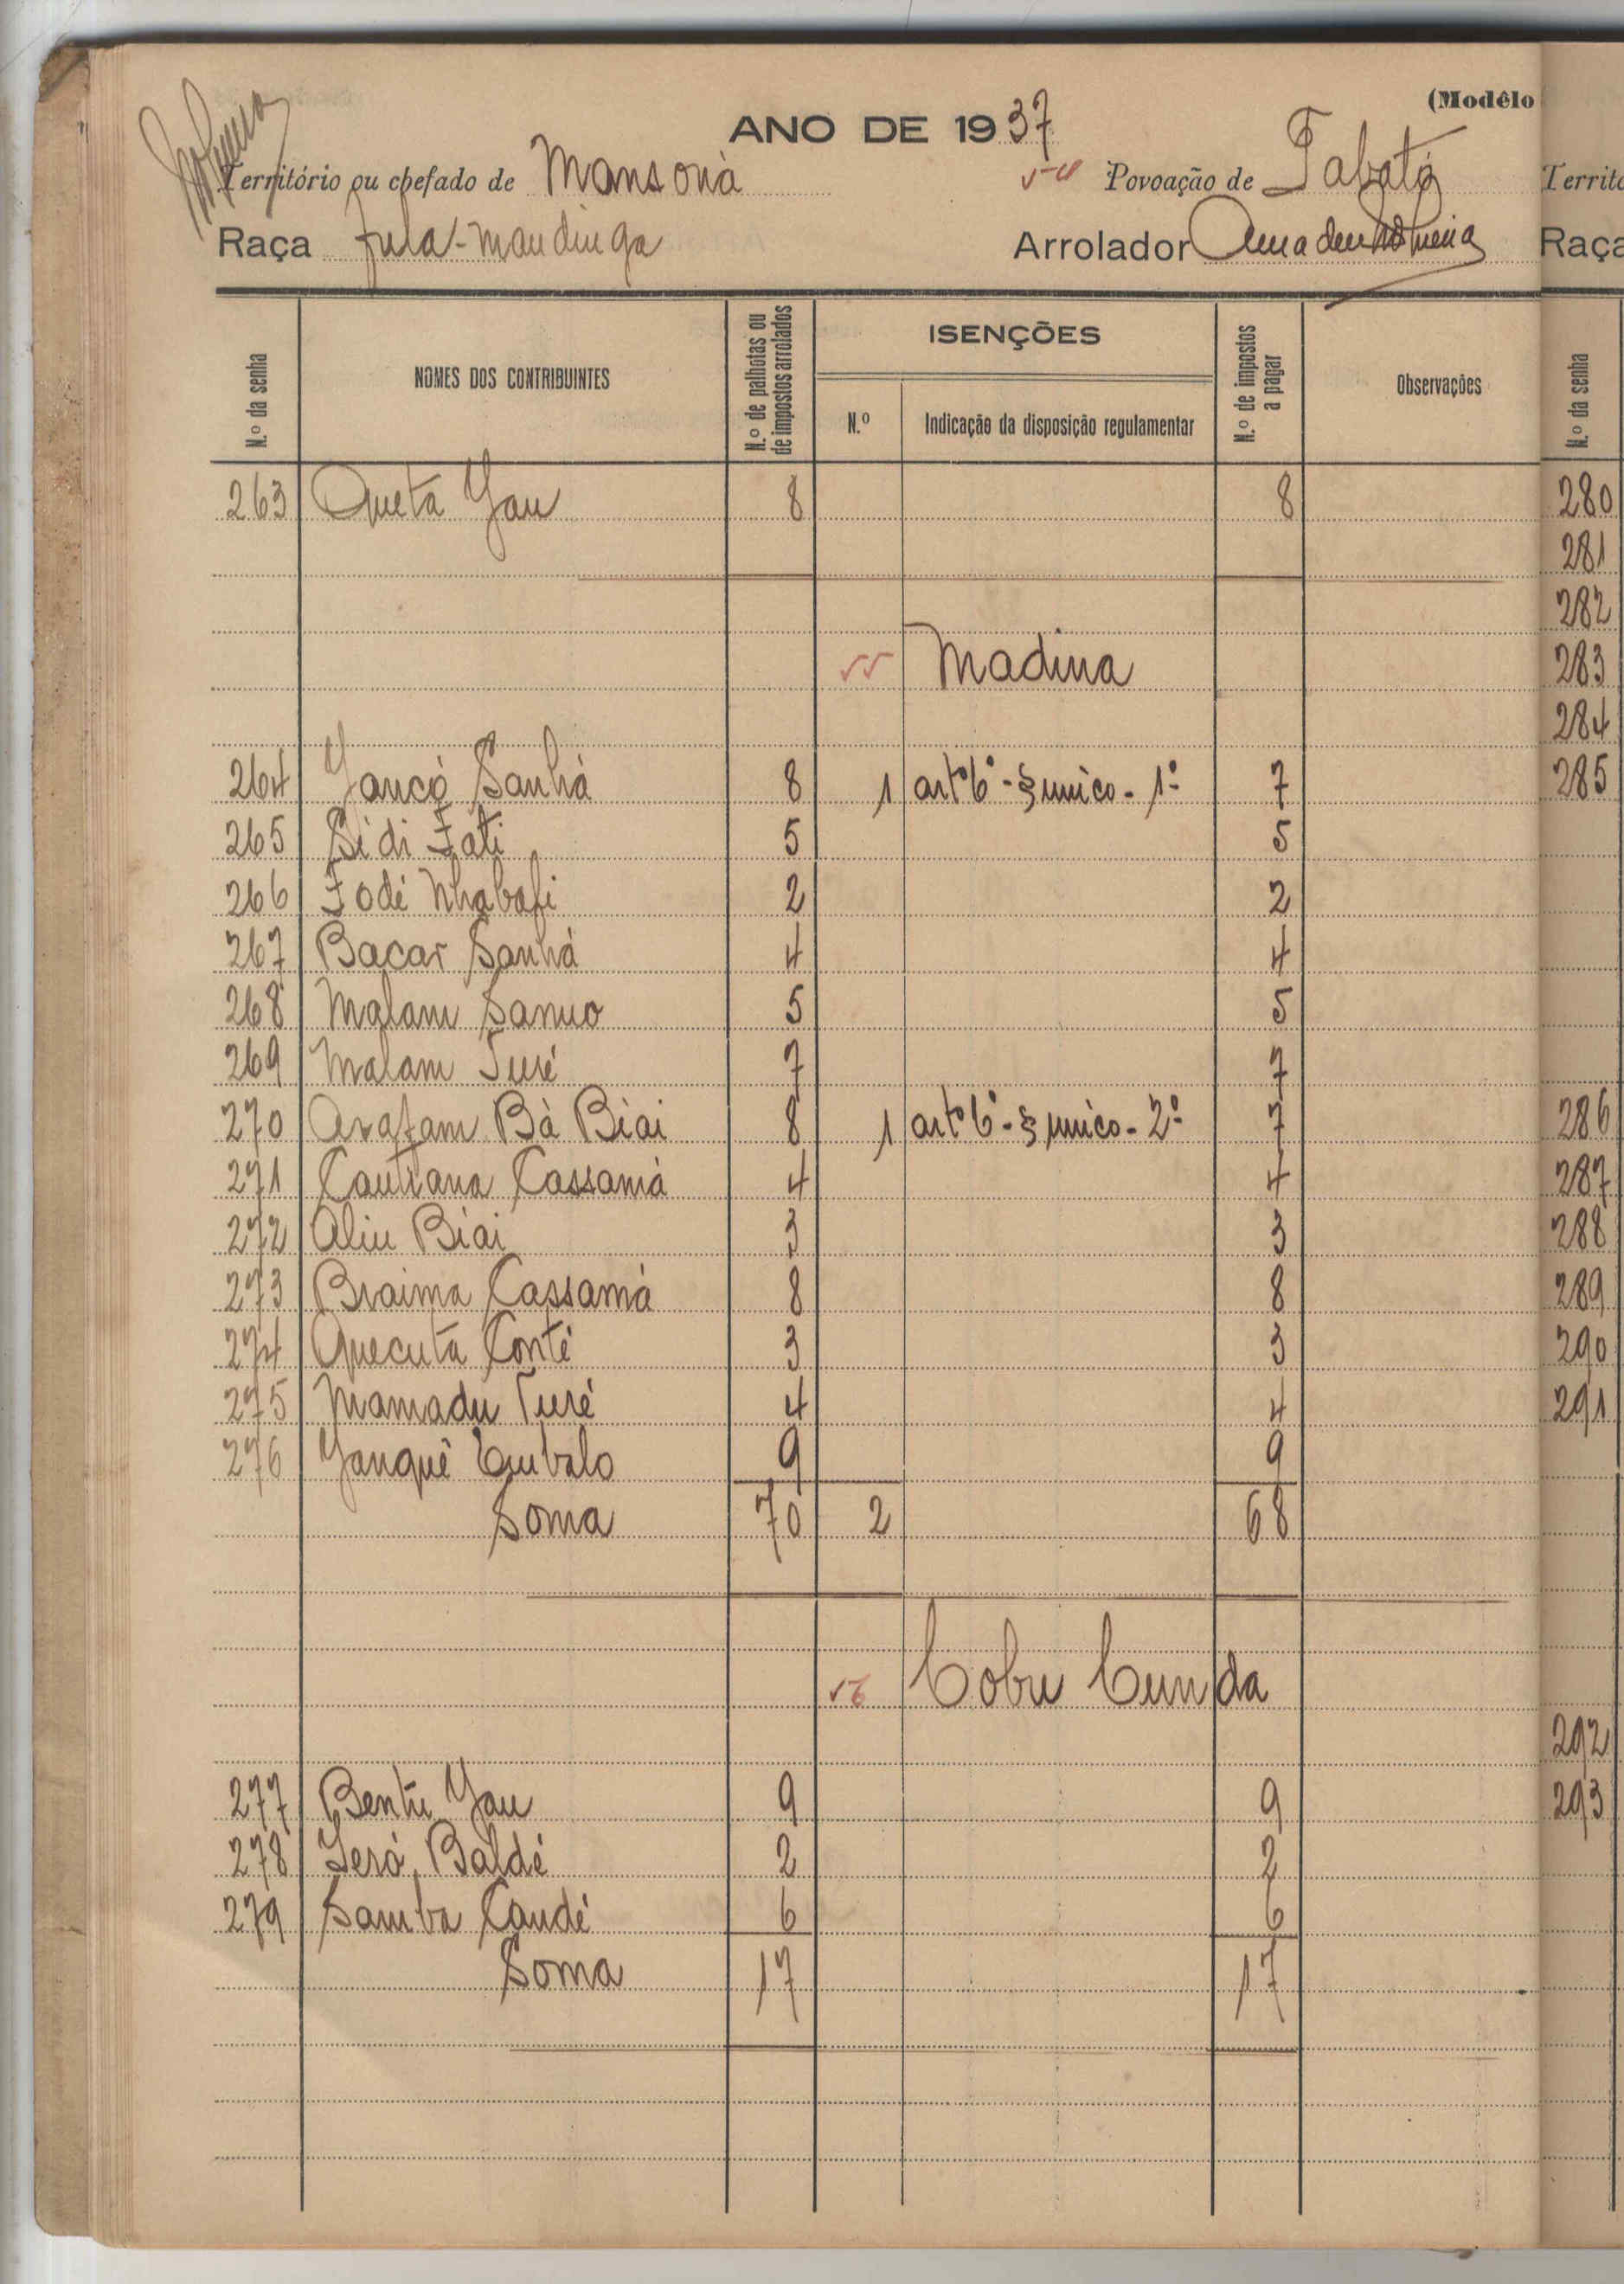 (Modêlo
ANO DE 1937
Território ou chefado de Mansonà Povoação de Tabatò
Raça fula-mandinga Arrolador Amadeu Nogueira
N.º da senha NOMES DOS CONTRIBUINTES N.º de palhotas ou de impostos arrolados ISENÇÕES N.º Indicação da disposição regulamentar N.º de impostos a pagar Observações
263 Queta Jau 8 8
Madina
264 Jancó Sanhá 8 1 artº 6º - § unico - 1º 7
265 Sidi Fati 5 5
266 Fodé Nhabali 2 2
267 Bacar Sanhá 4 4
268 Malam Sanuo 5 5
269 Malam Turé 7 7
270 Arafam Bà Biai 8 1 artº 6º - § unico - 2º 7
271 Cautiana Cassamá 4 4
272 Aliu Biai 3 3
273 Braima Cassamá 8 8
274 Quecuta Conté 3 3
275 Mamadu Turé 4 4
276 Janquê Embalo 9 9
Soma 70 2 68
Cobu Cunda
277 Bentu Jau 9 9
278 Jeró Baldé 2 2
279 Samba Candé 6 6
Soma 17 17
Territó
Raça
N.º da senha
280
281
282
283
284
285
286
287
288
289
290
291
292
293